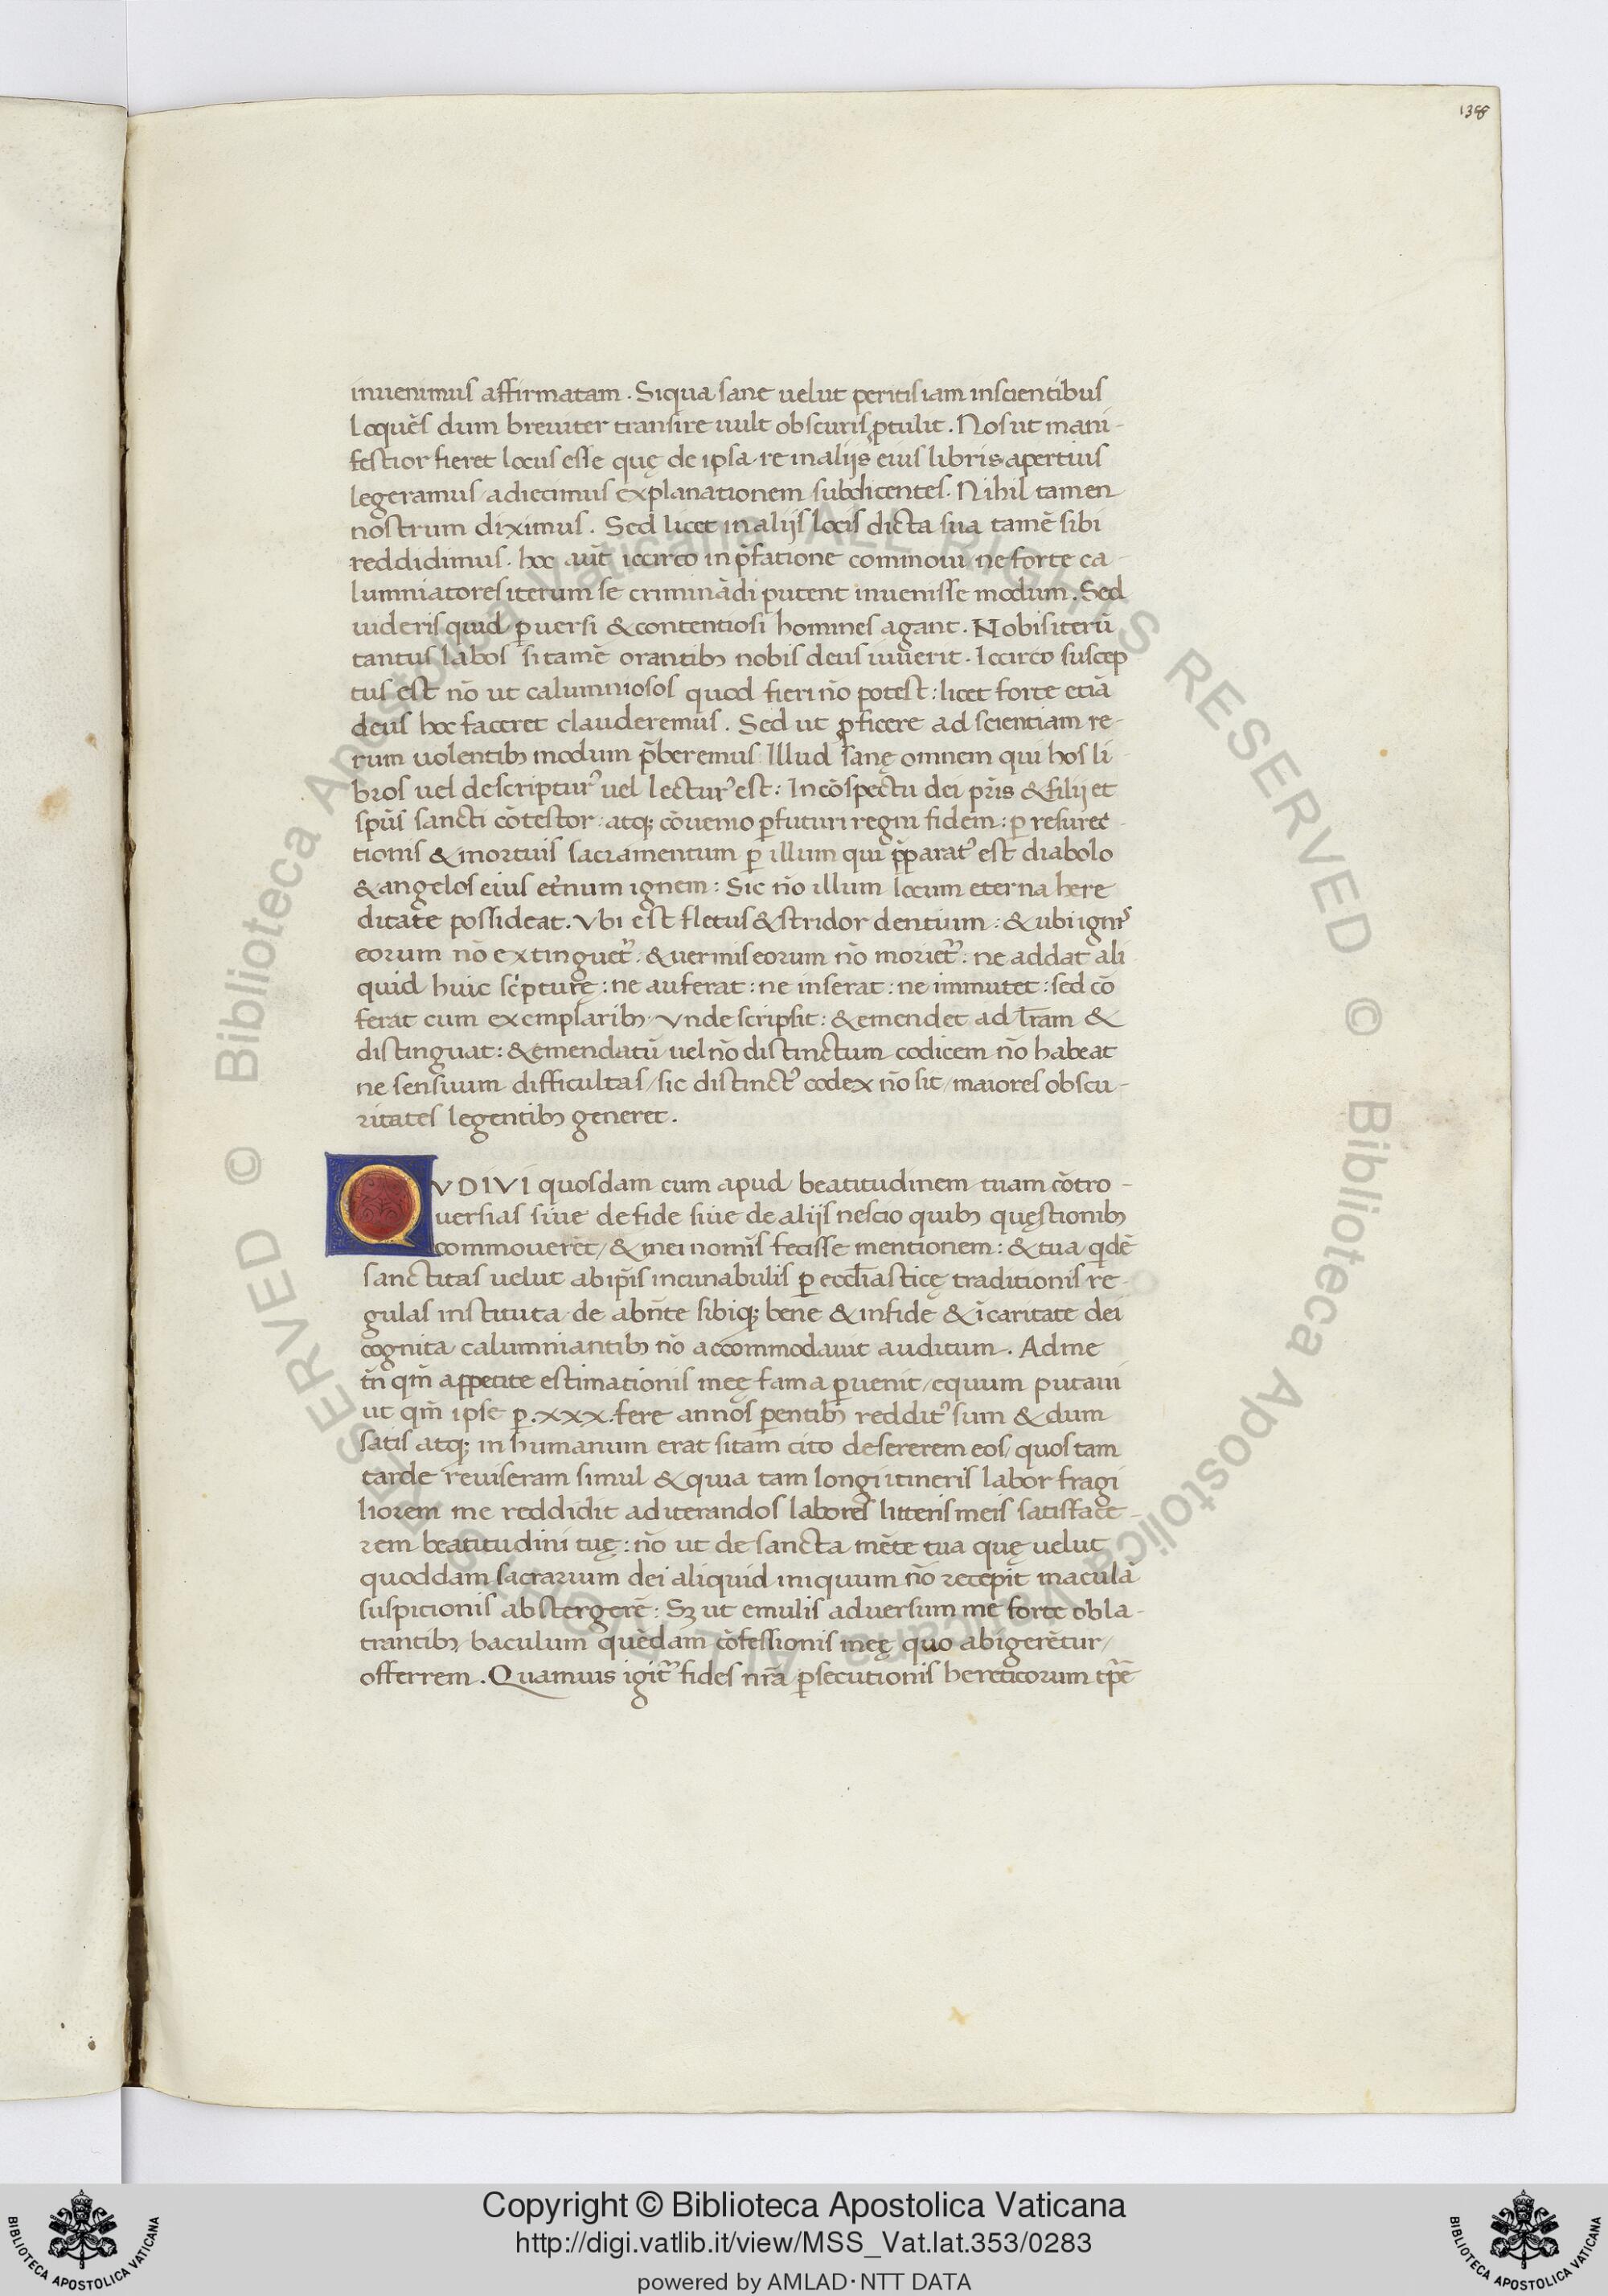 138
inuenimus affirmatam. Siqua sane uelut peritis iam inscientibus
loquẽs dum breuiter transire uult obscuris ꝓtulit. Nos ut mani-
festior fieret locus esse quę de ipsa re in alijs eius libris apertius
legeramus adiecimus explanationem subdicentes. Nihil tamen
nostrum diximus. Sed licet in alijs locis dicta sua tamẽ sibi
reddidimus. hoc aũt iccirco in p̃fatione commoui ne forte ca-
lumniatores iterum se criminãdi putent inuenisse modum. Sed
uideris quid ꝑuersi & contentiosi homines agant. Nobis iterũ
tantus labos si tamẽ orantibꝫ nobis deus iuuerit. Iccirco suscep
tus est nõ ut calumniosos quod fieri nõ potest: licet forte etiã
deus hoc faceret clauderemus. Sed ut ꝓficere ad scientiam re-
rum uolentibꝫ modum p̃beremus Illud sanę omnem qui hos li-
bros uel descripturꝰ uel lecturꝰ est: In cõspectu dei pr̃is & filij et
sp̃us sancti cõtestor atqꝫ cõuenio ꝑ futuri regni fidem: ꝑ resurec-
tionis & mortuis sacramentum ꝑ illum qui p̃paratꝰ est diabolo
& angelos eius et̃num ignem: Sic nõ illum locum eterna here
ditate possideat. Vbi est fletus & stridor dentium: & ubi ignis
eorum nõ extinguet᷑. & uermis eorum nõ moriet᷑: ne addat ali
quid huic sc̃pturę: ne auferat: ne inserat: ne immutet: sed cõ
ferat cum exemplaribꝫ Vnde scripsit: & emendet ad l̃ram &
distinguat: & emendatũ uel nõ distinctum codicem nõ habeat
ne sensuum difficultas/ sic distinctꝰ codex nõ sit/ maiores obscu-
ritates legentibꝫ generet.
QVDIVI quosdam cum apud beatitudinem tuam cõtro-
uersias siue de fide siue de alijs nescio quibꝫ quęstionibꝫ
commouerẽt/ & mei nom̃is fecisse mentionem: & tua qdẽ
sanctitas uelut ab ip̃is incunabulis ꝑ eccl̃iasticę traditionis re-
gulas instituta de abñte sibiqꝫ bene & in fide & ĩ caritate dei
cognita calumniantibꝫ nõ accommodauit auditum. Ad me
tñ qm̃ appetite estimationis meę fama ꝑuenit/ equum putaui
ut qm̃ ipse p. xxx. fere annos ꝑentibꝫ redditꝰ sum & dum
satis atqꝫ in humanum erat si tam cito desererem eos/ quos tam
tarde reuiseram simul & quia tam longi itineris labor fragi
liorem me reddidit ad iterandos labores litteris meis satisface-
rem beatitudini tuę: nõ ut de sancta mẽte tua quę uelut
quoddam sacrarium dei aliquid iniquum nõ recepit maculã
suspicionis abstergerẽ: Sꝫ ut emulis aduersum me forte obla-
trantibꝫ baculum quẽdam cõfessionis meę quo abigerẽtur/
offerrem. Quamuis igit᷑ fides nr̃a ꝑsecutionis hereticorum tp̃e
Copyright © Biblioteca Apostolica Vaticana
http://digi.vatlib.it/view/MSS_Vat.lat.353/0283
powered by AMLAD·NTT DATA
BIBLIOTECA APOSTOLICA VATICANA
BIBLIOTECA APOSTOLICA VATICANA
© Biblioteca Apostolica Vaticana ALL RIGHTS RESERVED © Biblioteca Apostolica Vaticana ALL RIGHTS RESERVED